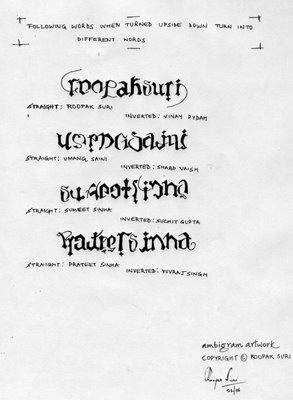 FOLLOWING WORDS WHEN TURNED UPSIDE DOWN TURN INTO
DIFFERENT WORDS
roopaksuri
STRAIGHT: ROOPAK SURI
INVERTED: VINAY PYDAH
STRAIGHT: UMANG SAINI
INVERTED: SHARD VAISH
STRAIGHT: SUMEET SINHA
INVERTED: SUCHIT GUPTA
STRAIGHT: PRATEET SINHA
INVERTED: YUVRAJ SINGH
ambigram artwork
COPYRIGHT © ROOPAK SURI